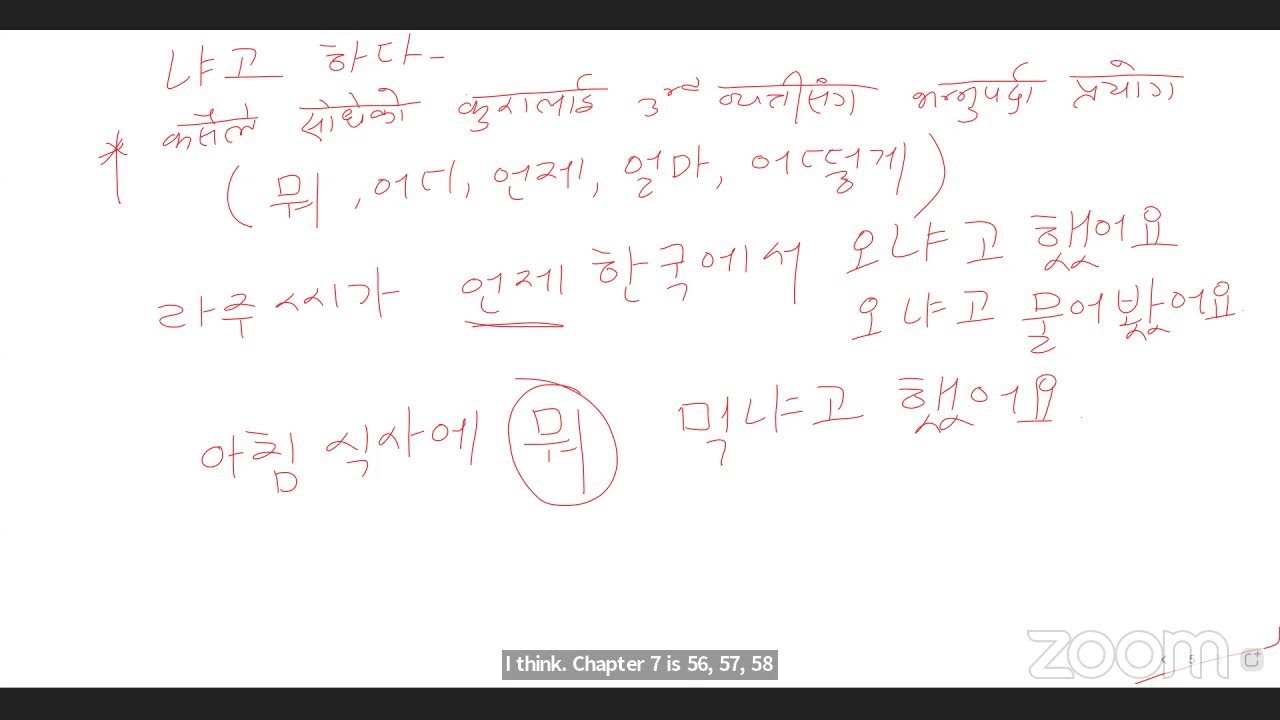 냐고 하다-
* कसैले सोधेको कुरालाई 3rd व्यक्तीसंग भन्नुपर्दा प्रयोग
(뭐, 어디, 언제, 얼마, 어떻게)
라주 씨가 언제 한국에서 오냐고 했어요
오냐고 물어봤어요.
아침 식사에 뭐 먹냐고 했어요.
zoom
I think. Chapter 7 is 56, 57, 58